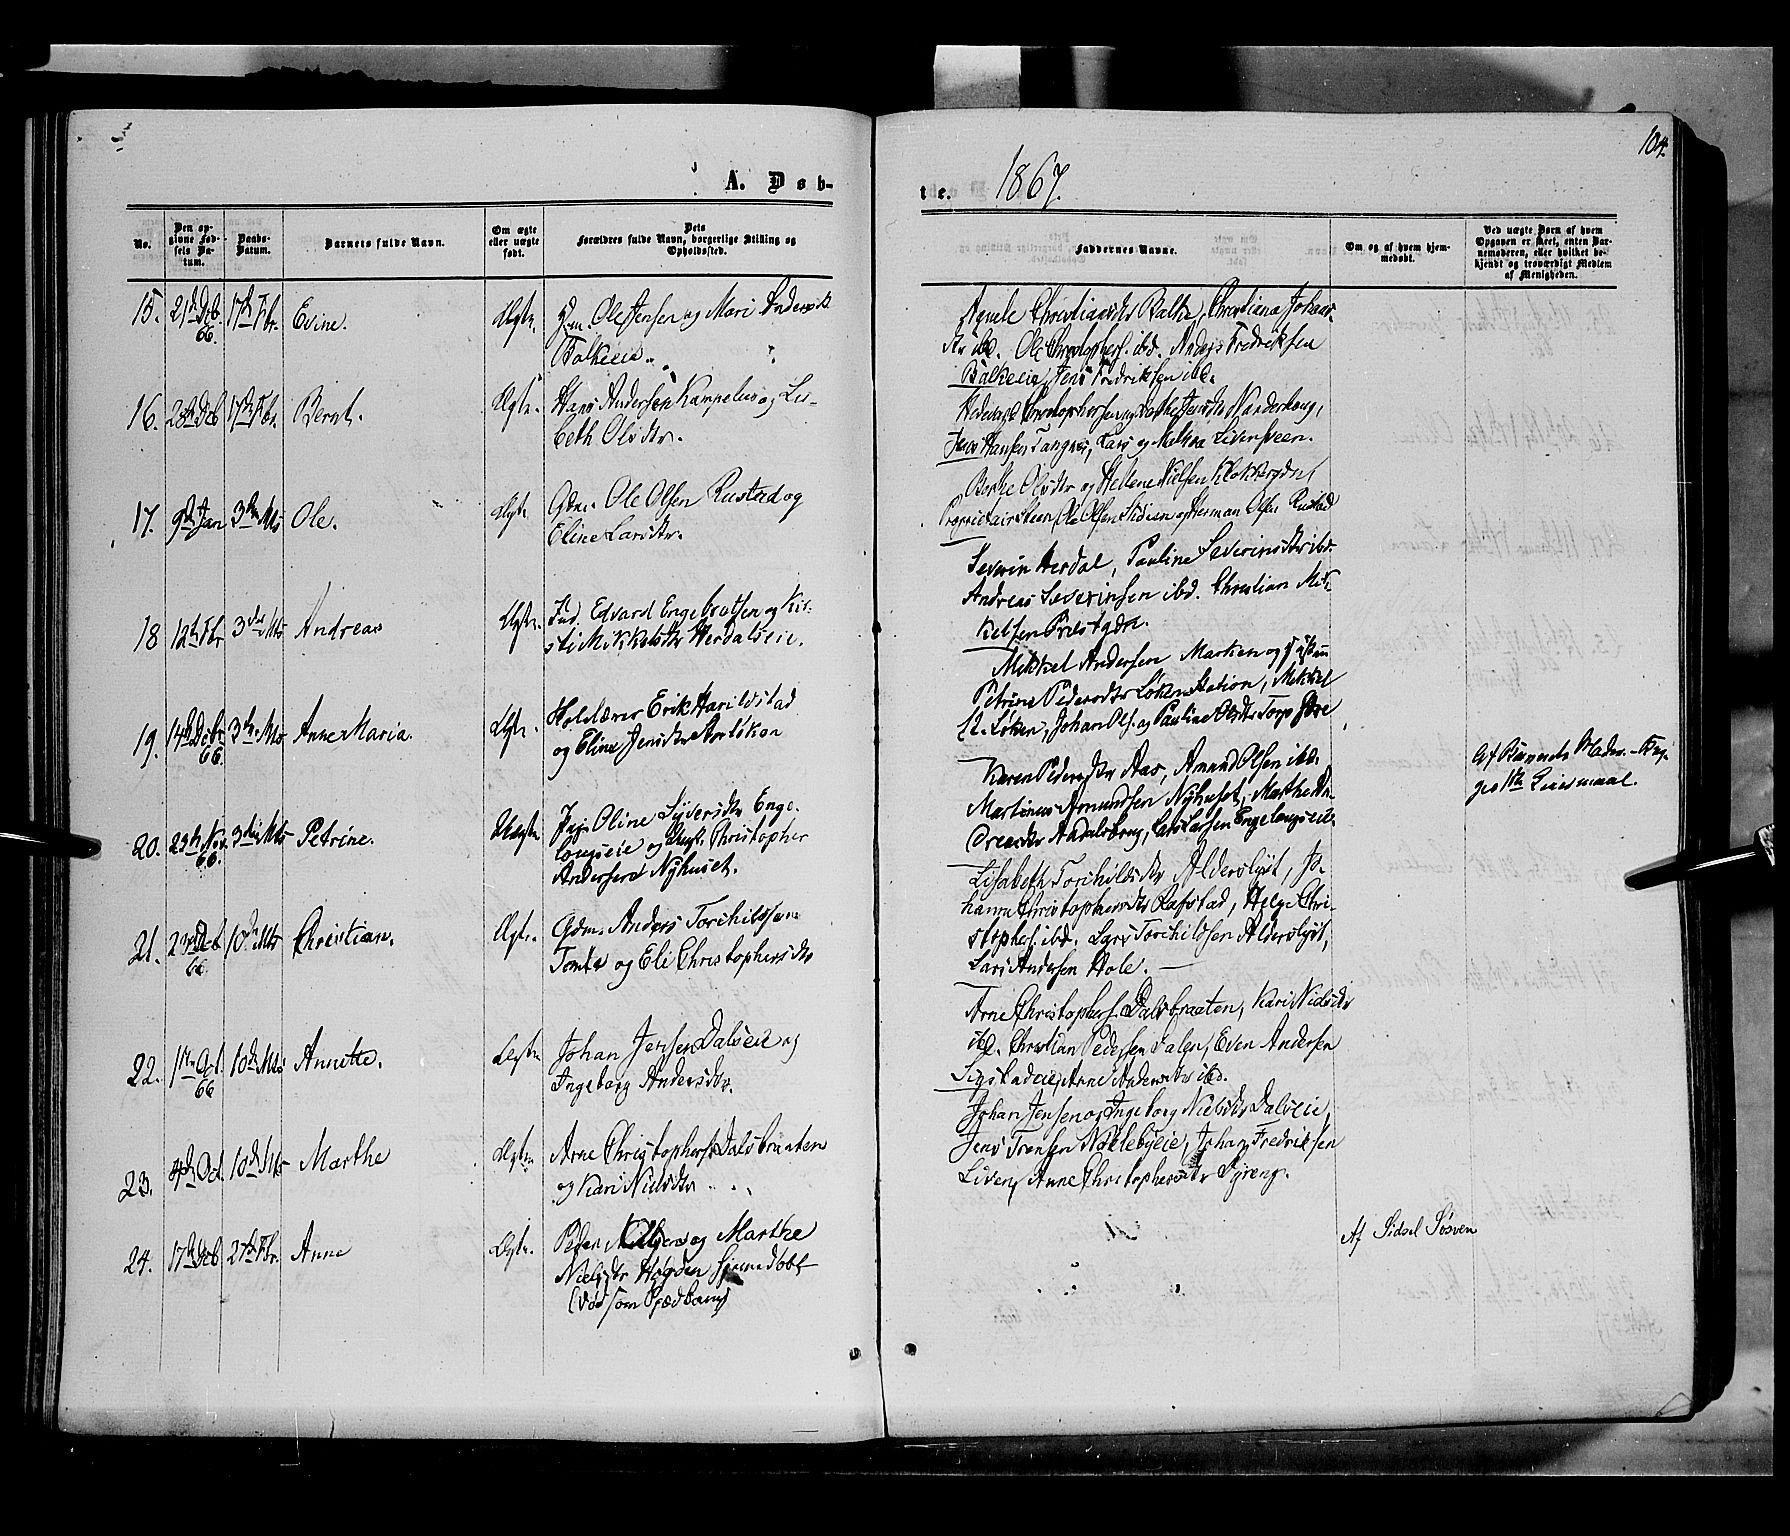 104.
A. Døb-
te. 1867.
No.
Den op-
givne Fød-
sels Da-
tum.
Daabs-
Datum.
Barnets fulde Navn.
Om ægte
eller uægte
født.
Dets
Forældres fulde Navn, borgerlige Stilling og
Opholdssted.
Faddernes Navne.
Om og af hvem hjem-
medøbt.
Ved uægte Børn af hvem
Opgaven er skeet, enten Bar-
nemoderen, eller hvilket be-
kjendt og troværdigt Medlem
af Menigheden.
15. 21de Deb 66. 17de Fbr. Evine. Ægte. Ole Jensen og Mari Andersdr
Balkeeie.
Christiansdr Balke, Christiana Johans-
dr ibd. Ole Christophers. ibd. Anders Fredriksen
Balkeeie, Jens Fredriksen ibd.
16. 28de Deb 17de Fbr. Bernt. Ægte. Hans Andersen og Lis-
beth Olsdtr.
Jens Hansen Tangnes, Lars
17. 9de Jan 3die Mts Ole. Ægte Gdm. Ole Olsen Rustad og
Eline Larsdtr.
Olsdtr og Hellene Nielsen
Ole Olsen og Herman Olsen Rustad
18 12te Fbr 3die Mts Andreas Ægte. Ind. Edvard Engebretsen og Kir-
sti Mikkelsdtr Herdalseie.
Severin Herdal, Pauline Severinsdtr ibd.
Andreas Severinsen ibd. Christian Mik-
kelsen Præstgdn.
19. 14de Debr 66. 3die Mts Anne Maria. Ægte. Erik Harildstad
og Eline Jensdtr
Mikkel Andersen og
Petrine Pedersdtr Løken Station, Mikkel
Løken, Johan Ols. og Pauline Olsdtr Torp
20. 23de Nov. 66. 3die Mts Petrine. Uægte. Oline Syversdtr Enge-
longseie og Ungk. Christopher
Andersen Nyhuset.
Karen Pedersdtr Aas, Amund Olsen ibd.
Martinus Amundsen Nyhuset, Marthe An-
dreasdtr Lars Larsen Engelongseie
Af Barnets Moder. Beg-
ges 1ste Leiermaal.
21. 23de Deb 66. 10de Mts Christian. Ægte. Gdm. Anders Torchildsen
Tomte og Eli Christophersdtr
Lisabeth Torchildsdtr Alderslyst, Jo-
hanne Christophersdtr Rafstad, Helge Chri-
stophers. ibd. Lars Torchildsen Alderslyst,
Lars Andersen Hole.
22. 1ste Oct. 66 10de Mts Annette. Ægte Johan Jensen Dalseie og
Ingeborg Andersdtr.
Arne Christophers. Dalsbraaten, Kari Nielsdtr
ibd. Christian Pedersen Dalen, Even Andersen
Sigstadeie, Andersdtr ibd.
23. 4de Oct. 10de Mts Marthe Ægte. Arne Christophersen Dalsbraaten
og Kari Nielsdtr
Johan Jensen og Ingeborg Nielsdtr Dalseie,
Jens Nøklebyeie, Johan Fredriksen
Liven, Anne Christophersdtr Dyreng.
24. 17de Deb 27de Fbr. Anne Ægte. Peder og Marthe
Nielsdtr Hjemmedøbt
(død som Spædbarn)
Af Sidsel Søsven